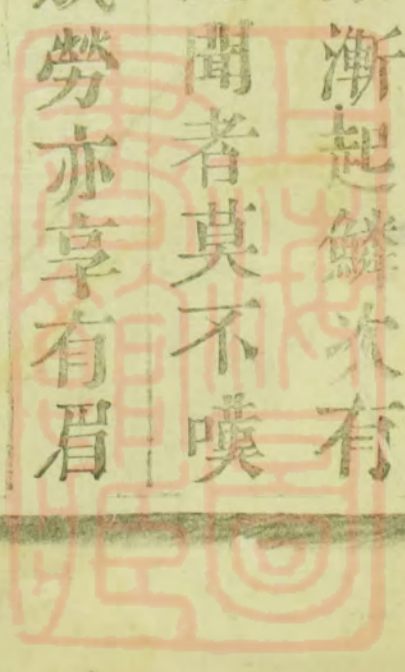 漸起鱗次有
聞者莫不嘆
勞亦享有眉